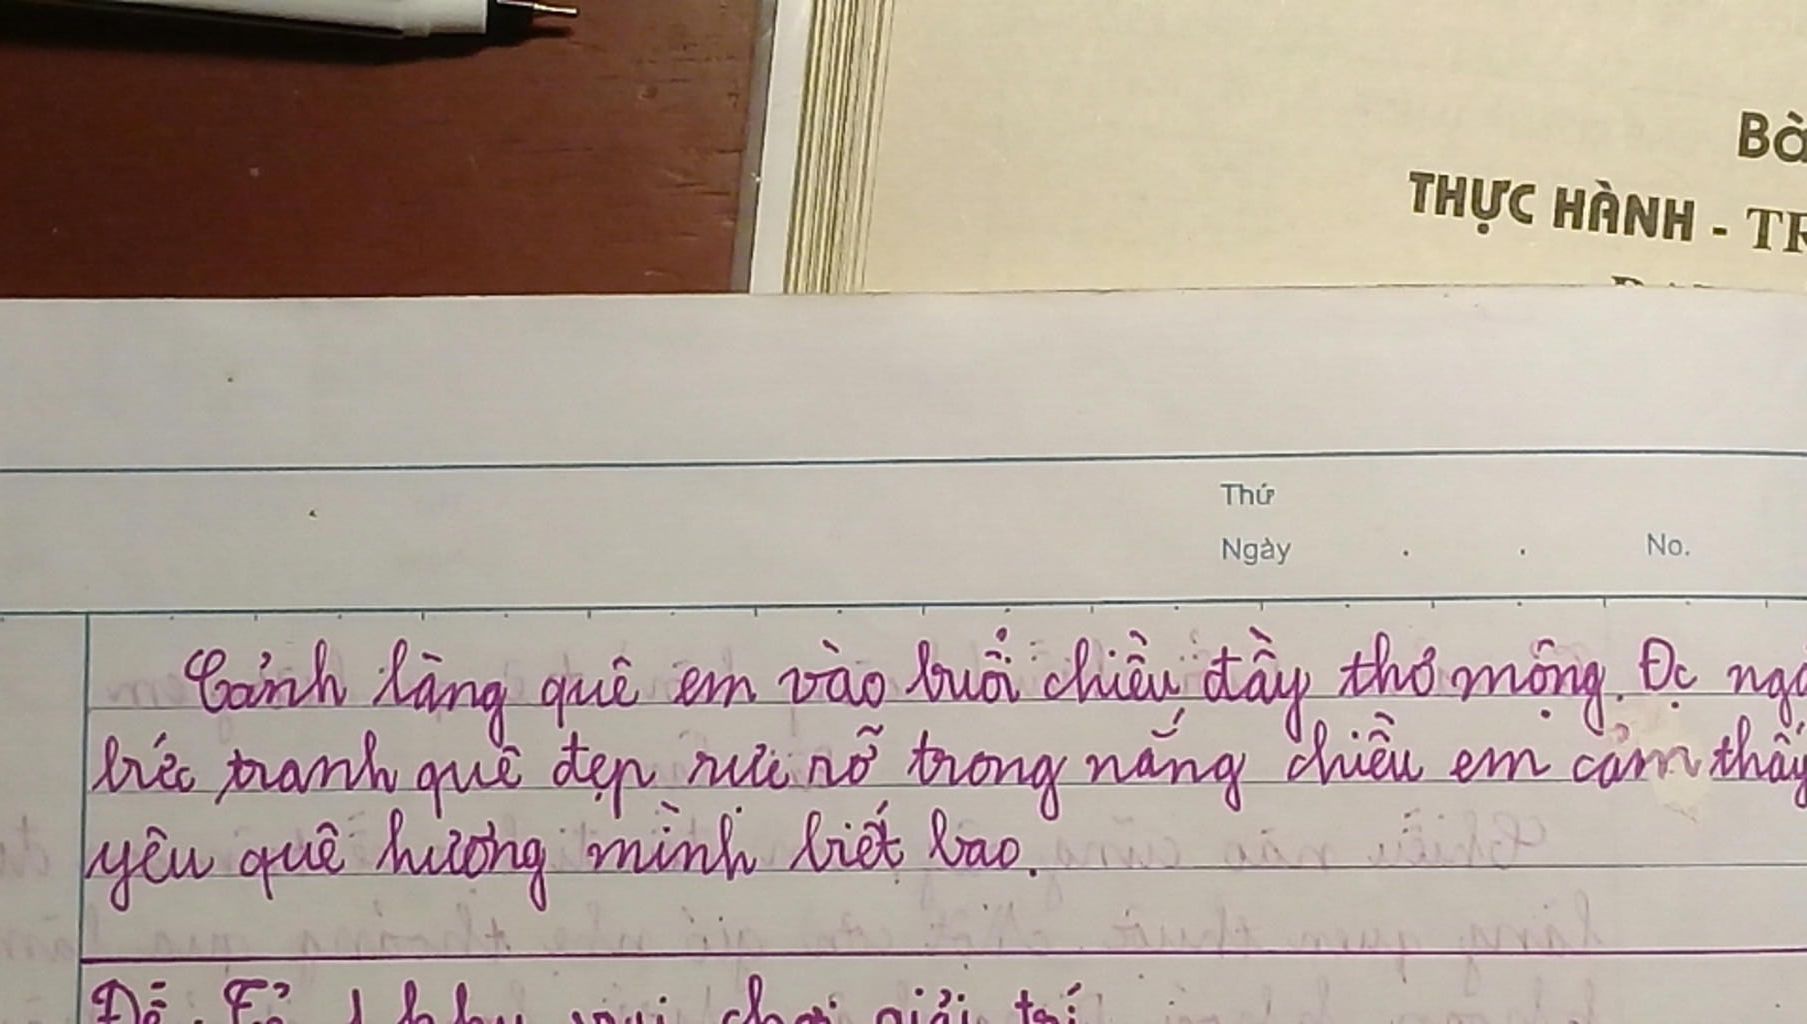 Bà
THỰC HÀNH - TR
Thứ
Ngày . . No.
Cảnh làng quê em vào buổi chiều đầy thơ mộng. Đc ngắ
bức tranh quê đẹp rực rỡ trong nắng chiều em cảm thấy
yêu quê hương mình biết bao.
Đề: Tả 1 khu vui chơi giải trí